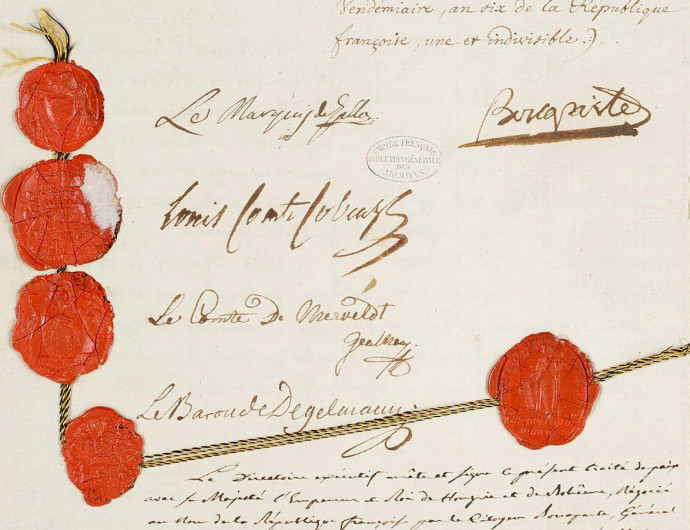 Vendémiaire, an six de la République
françoise, une et indivisible.).
Le Marquis de Gallo
Bonaparte
EMPIRE FRANÇAIS
DIRECTION GÉNÉRALE
DES
ARCHIVES.
Louis Comte Cobenzl
Le Comte De Merveldt
Le Baron de Degelmann
Le Directoire exécutif arrête et signe le présent traité de paix
avec sa Majesté l'Empereur et Roi de Hongrie et de Bohême, Négocié
au Nom de la République françoise par le Citoyen Bonaparte, Général